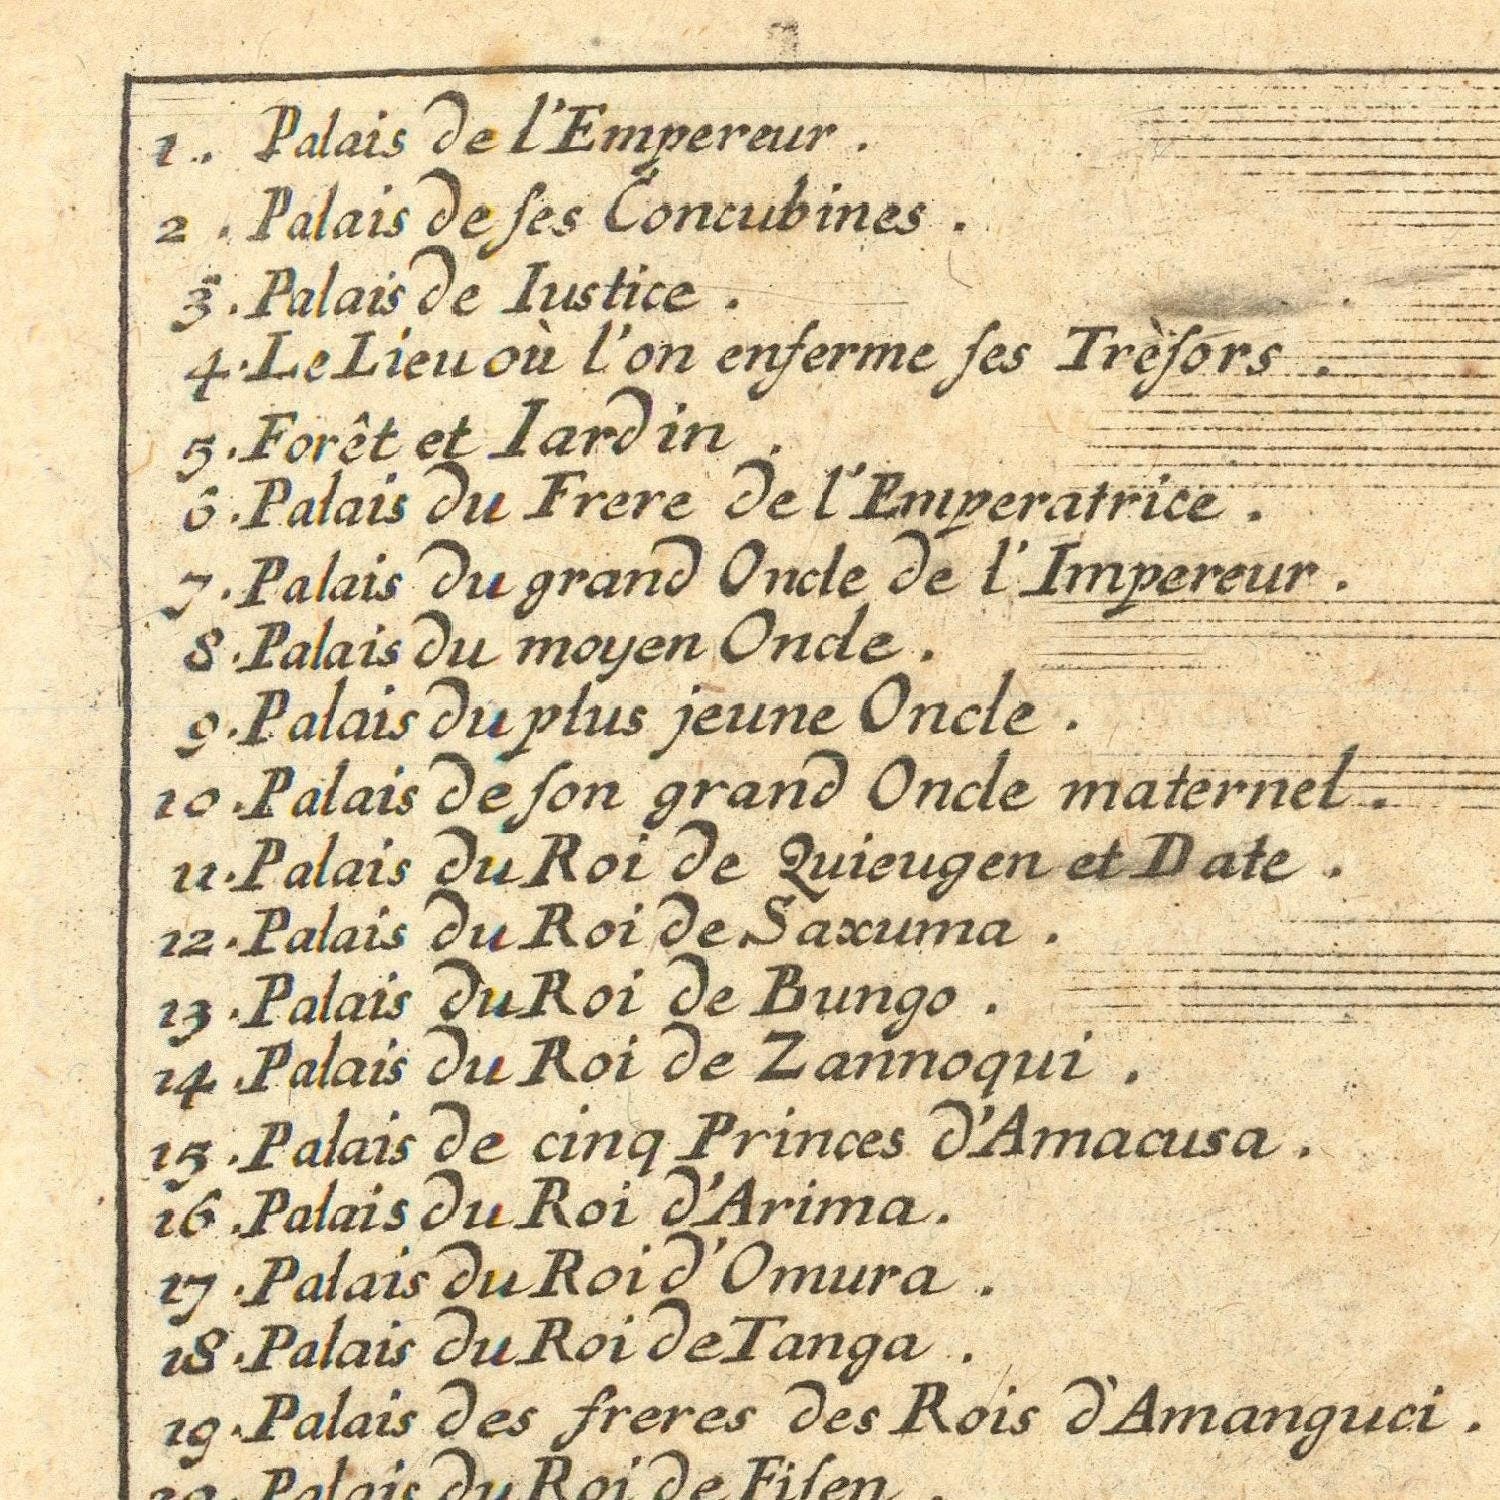 1. Palais de l'Empereur.
2. Palais de ses Concubines.
3. Palais de Iustice.
4. Le Lieu où l'on enferme ses Trèsors.
5. Forêt et Iardin.
6. Palais du Frere de l'Emperatrice.
7. Palais du grand Oncle de l'Impereur.
8. Palais du moyen Oncle.
9. Palais du plus jeune Oncle.
10. Palais de son grand Oncle maternel.
11. Palais du Roi de Quieugen et Date.
12. Palais du Roi de Saxuma.
13. Palais du Roi de Bungo.
14. Palais du Roi de Zannoqui.
15. Palais de cinq Princes d'Amacusa.
16. Palais du Roi d'Arima.
17. Palais du Roi d'Omura.
18. Palais du Roi de Tanga.
19. Palais des freres des Rois d'Amanguci.
Palais du Roi de Fisen.